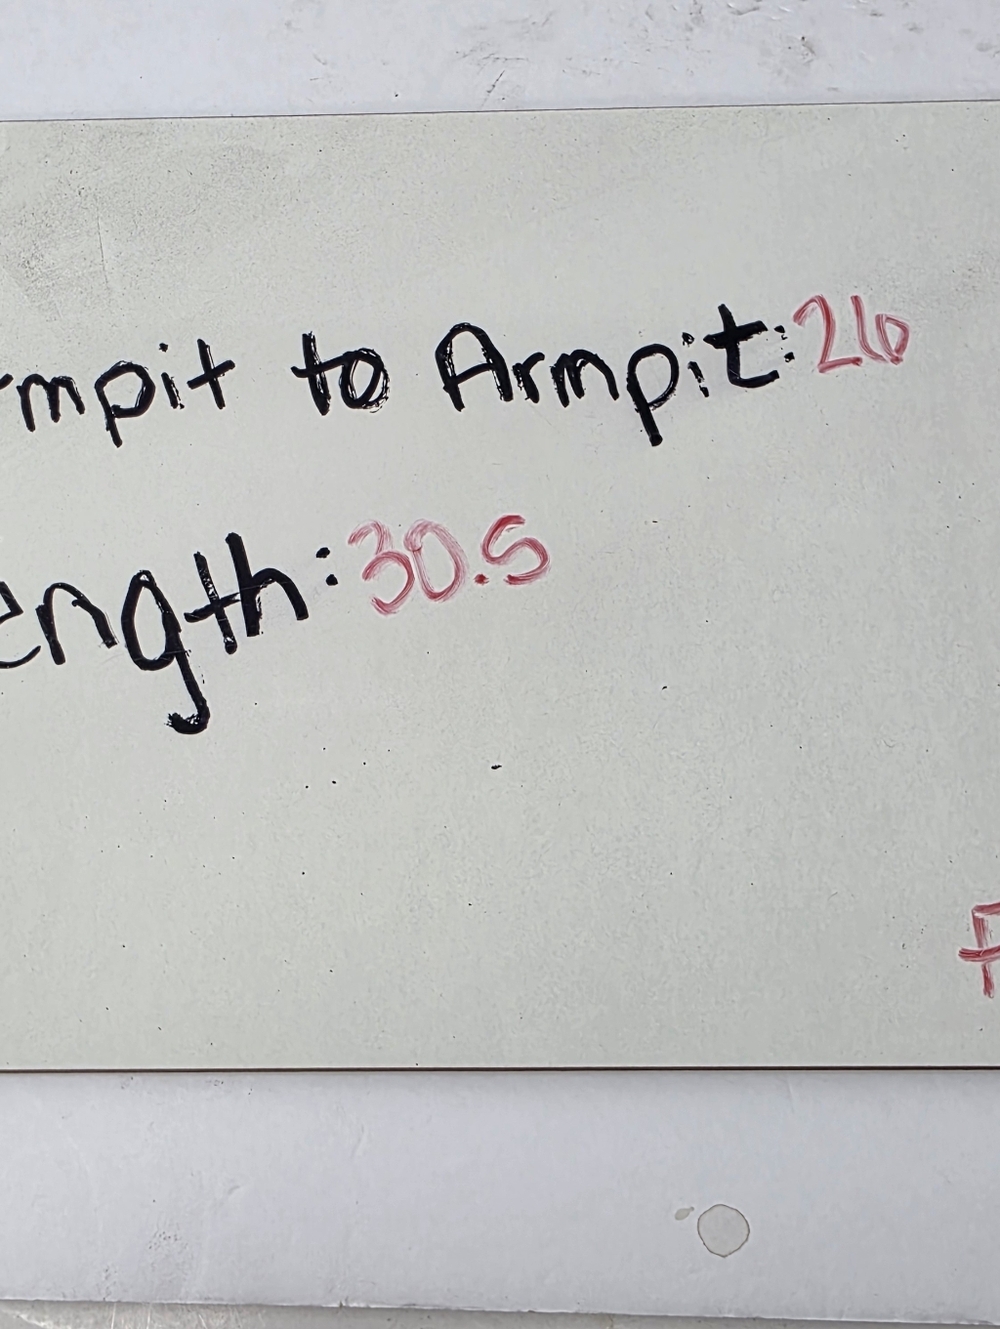 rmpit to Armpit: 26
ength: 30.5
F